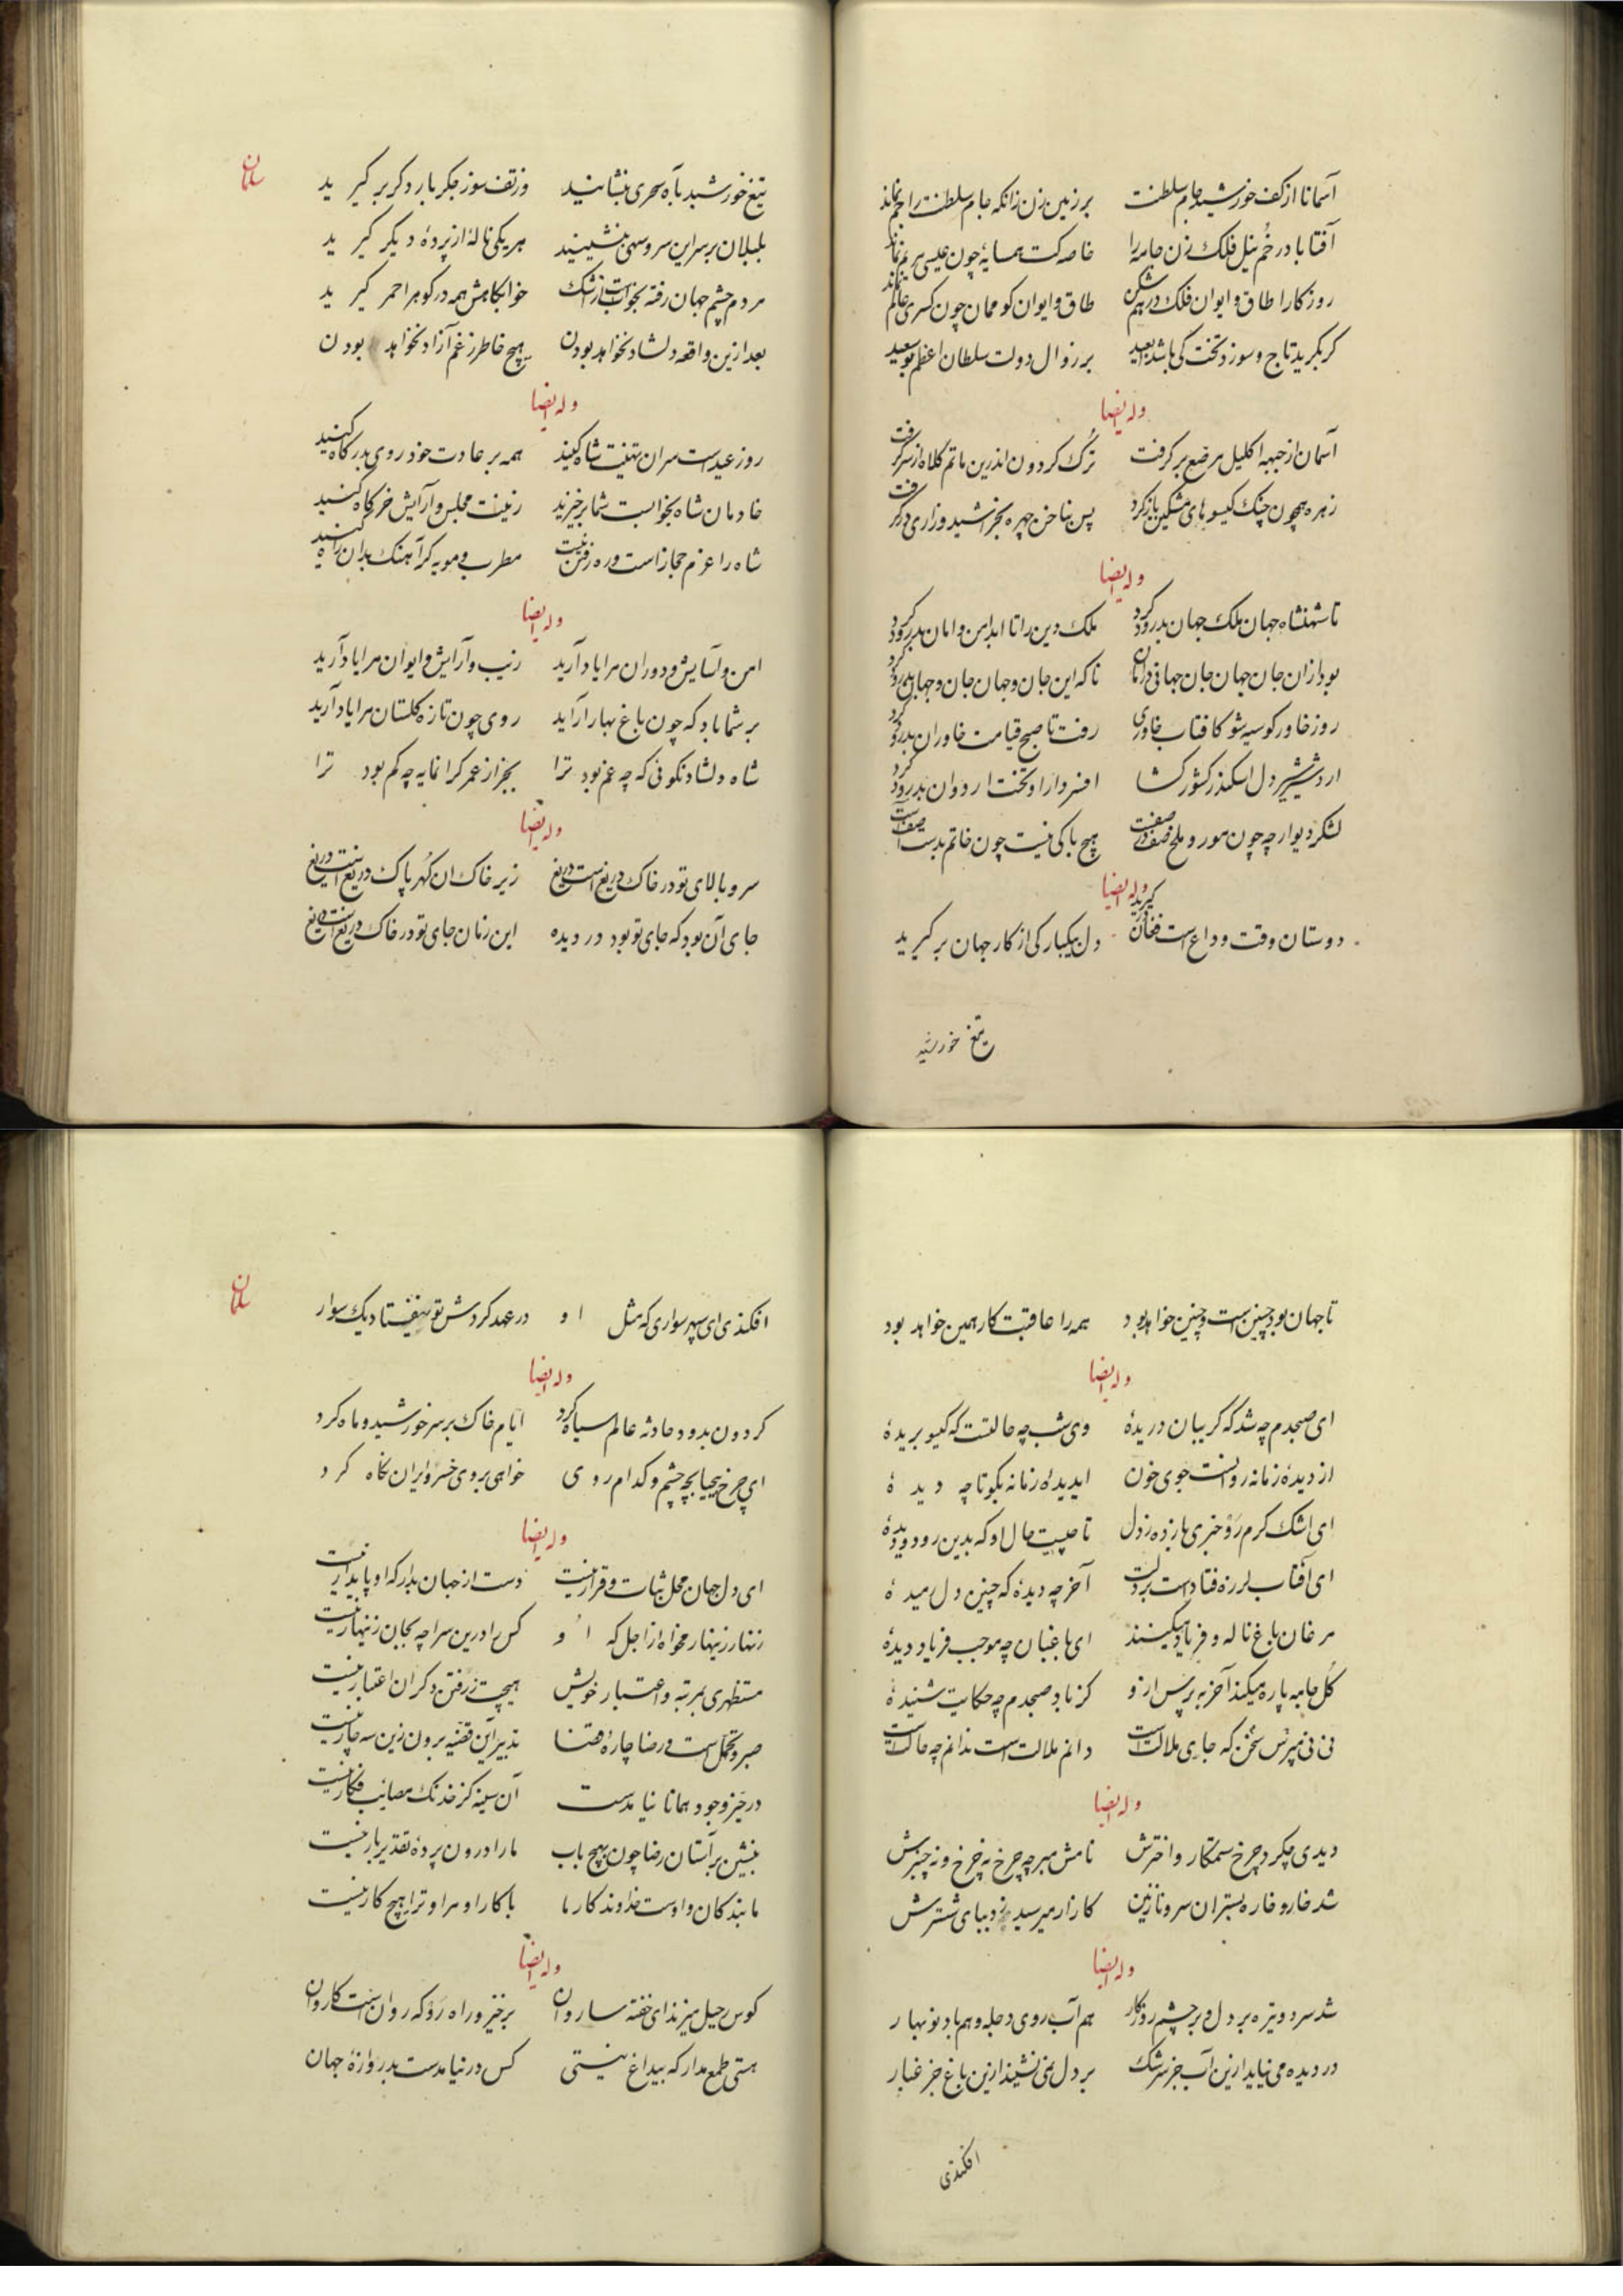 آسمانا از کف خورشید جام سلطنت بر زمین زن زانکه جام سلطنت را جم نماند
آفتابا در خُم نیل فلک زن جامه را خاصه کت همسایهٔ چون عیسی مریم نماند
روزکارا طاق و ایوان فلک در هم شکن طاق و ایوان کو ممان چون کسری عالم نماند
کر بکرید تاج و سوزد تخت کی باشد بعید بر زوال دولت سلطان اعظم بوسعید
وله ایضا
آسمان از جبهه اکلیل مرصع بر کرفت تُرک کردون اندرین ماتم کلاه از سر کرفت
زهره همچون چنک کیسوهای مشکین باز کرد پس بناخن چهره بخراشید و زاری در کرفت
وله ایضا
تا شهنشاه جهان ملک جهان بدرود کرد ملک دین را تا ابد امن و امان بدرود کرد
بود ازان جان جهان جان جهانی در امان تا که این جان و جهان جان و جهان بدرود کرد
روز خاور کو سیه شو کافتاب خاوری رفت تا صبح قیامت خاوران بدرود کرد
اردشیر شیر دل اسکندر کشور کشا افسر دارا و تخت اردوان بدرود کرد
لشکر دیو ارچه چون مور و ملخ صف در صفست هیچ باکی نیست چون خاتم بدست آصفست
وله ایضا
دوستان وقت وداع است فغان در کیرید دل بیکبارکی از کار جهان بر کیرید
تیغ خورشید
سلمان
تیغ خورشید بآه سحری بنشانید وز تف سوز جکر بار دکر بر کیرید
بلبلان بر سر این سرو سهی بنشینید هر یکی نالهٔ از پردهٔ دیکر کیرید
مردم چشم جهان رفته بخوابست ز اشک خوابکاهش همه در کوهر احمر کیرید
بعد ازین واقعه دلشاد نخواهد بودن هیچ خاطر ز غم آزاد نخواهد بودن
وله ایضا
روز عیدست سران تهنیت شاه کنید همه بر عادت خود روی بدرکاه کنید
خادمان شاه بخوابست شما برخیزید زینت مجلس و آرایش خرکاه کنید
شاه را عزم حجاز است و ره رفتن نیست مطرب و مویه کر آهنک بدان راه کنید
وله ایضا
امن و آسایش و دوران مرا یاد آرید زیب و آرایش و ایوان مرا یاد آرید
بر شما باد که چون باغ بهار آراید روی چون تازه کلستان مرا یاد آرید
شاه دلشاد نکوئی که چه غم بود ترا بجز از عمر کرانمایه چه کم بود ترا
وله ایضا
سرو بالای تو در خاک دریغ است دریغ زیر خاک ان کُهر پاک دریغ است دریغ
جای آن بود که جای تو بود در دیده این زمان جای تو در خاک دریغ است دریغ
تا جهان بود چنین است و چنین خواهد بود همه را عاقبت کار همین خواهد بود
وله ایضا
ای صبحدم چه شد که کریبان دریدهٔ وی شب چه حالتست که کیسو بریدهٔ
از دیدهٔ زمانه روانست جوی خون ای دیدهٔ زمانه بکو تا چه دیدهٔ
ای اشک کرم رَوْ خبری باز ده ز دل تا چیست حال او که بدین رو دویدهٔ
ای آفتاب لرزه فتادست بر دلت آخر چه دیدهٔ که چنین دل رمیدهٔ
مرغان باغ ناله و فریاد میکنند ای باغبان چه موجب فریاد دیدهٔ
کُل جامه پاره میکند آخر بپرس ازو کز باد صبحدم چه حکایت شنیدهٔ
نی نی مپرس سخن که جای ملالت است دانم ملالت است ندانم چه حالت است
وله ایضا
دیدی چکرد چرخ ستمکار و اخترش نامش مبر چه چرخ نه چرخ و نه چنبرش
شد خار و خاره بستر ان سرو نازنین کازار میرسید ز دیبای ششترش
وله ایضا
شد سرد و تیره بر دل و بر چشم روزکار هم آب روی دجله و هم باد نوبهار
در دیده می نیاید ازین آب جز سرشک بر دل نمی نشیند ازین باغ جز غبار
افکندی
سلمان
افکندی ای سپهر سواری که مثل او در عهد کردش تو نیفتاد یک سوار
وله ایضا
کردون بدود حادثه عالم سیاه کرد ایام خاک بر سر خورشید و ماه کرد
ای چرخ بیحیا بچه چشم و کدام روی خواهی بروی خسرو ایران نکاه کرد
وله ایضا
ای دل جهان محل ثبات و قرار نیست دست از جهان بدار که او پایدار نیست
زنهار زینهار مخواه از اجل که او کس را درین سرا چه بجان زینهار نیست
مستظهری بمرتبه و اعتبار خویش هیچت ز رفتن دکران اعتبار نیست
صبر و تحمل است و رضا چارهٔ قضا تدبیر این قضیه برون زین سه چار نیست
در حیز وجود همانا نیامدست آن سینه کز خدنک مصائب فکار نیست
بنشین بر آستان رضا چون بهیچ باب ما را درون پردهٔ تقدیر بار نیست
ما بندکان و اوست خداوند کار ما با کار او مرا و ترا هیچ کار نیست
وله ایضا
کوس رحیل میزند ای خفته ساروان برخیز و راه رَوْ که روان است کاروان
هستی طمع مدار که بیداغ نیستی کس در نیامدست بدروازهٔ جهان